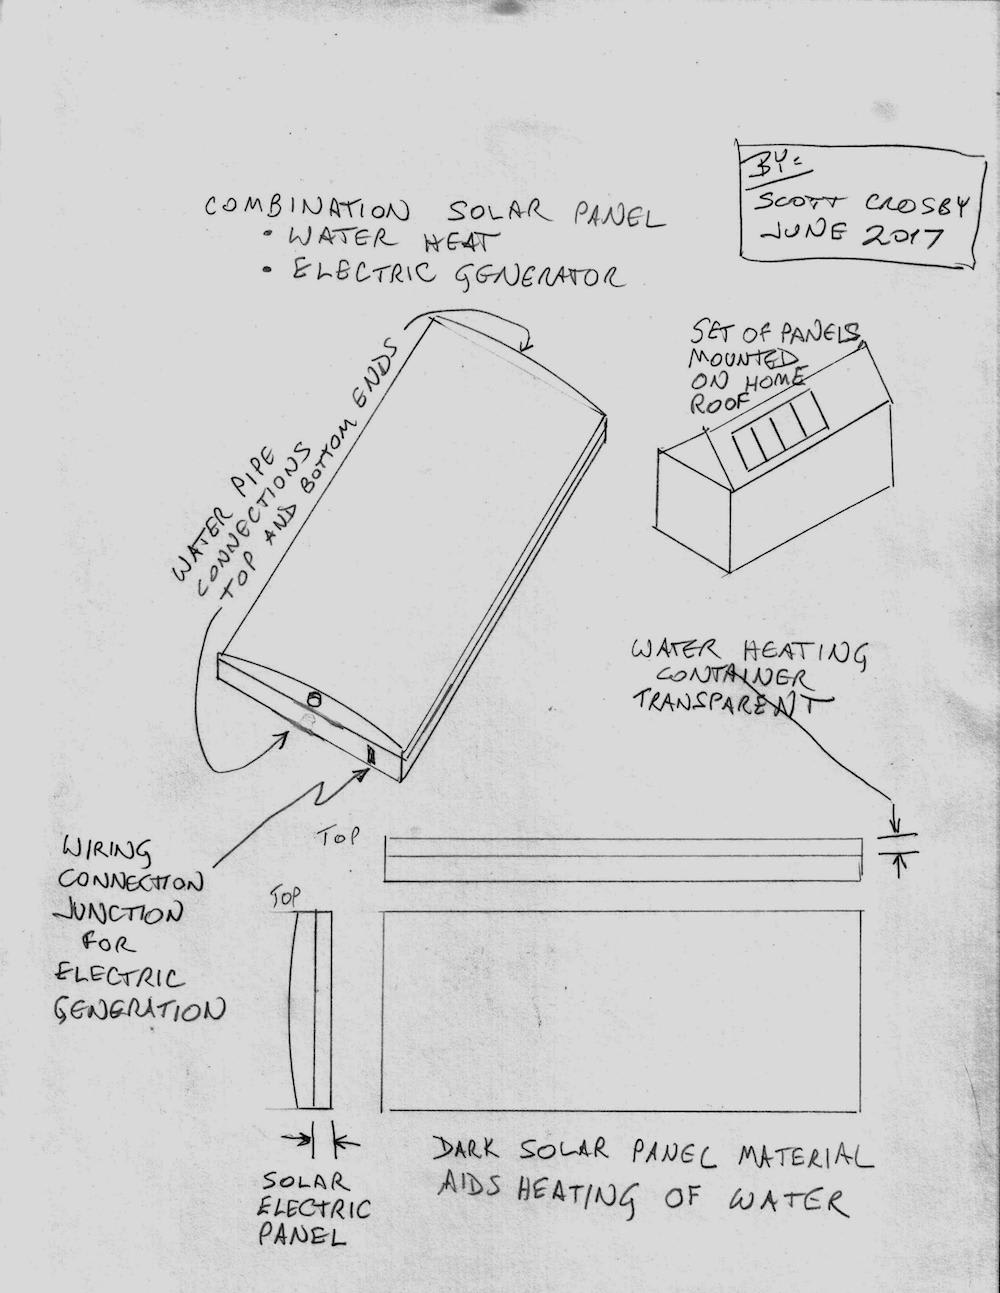 BY:
SCOTT CROSBY
JUNE 2017
COMBINATION SOLAR PANEL
• WATER HEAT
• ELECTRIC GENERATOR
SET OF PANELS
MOUNTED
ON HOME
ROOF
WATER PIPE
CONNECTIONS
TOP AND BOTTOM ENDS
WATER HEATING
CONTAINER
TRANSPARENT
TOP
WIRING
CONNECTION
JUNCTION
FOR
ELECTRIC
GENERATION
TOP
SOLAR
ELECTRIC
PANEL
DARK SOLAR PANEL MATERIAL
AIDS HEATING OF WATER